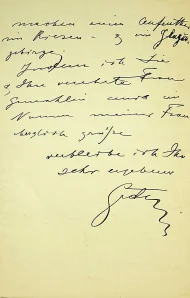 machen einen Aufenthalt
im Riesen- u. im Glatzer
gebirge.
Indem ich Sie
u. Ihre verehrte Frau
Gemahlin auch im
Namen meiner Frau
herzlich grüße
verbleibe ich Ihr
sehr ergebener